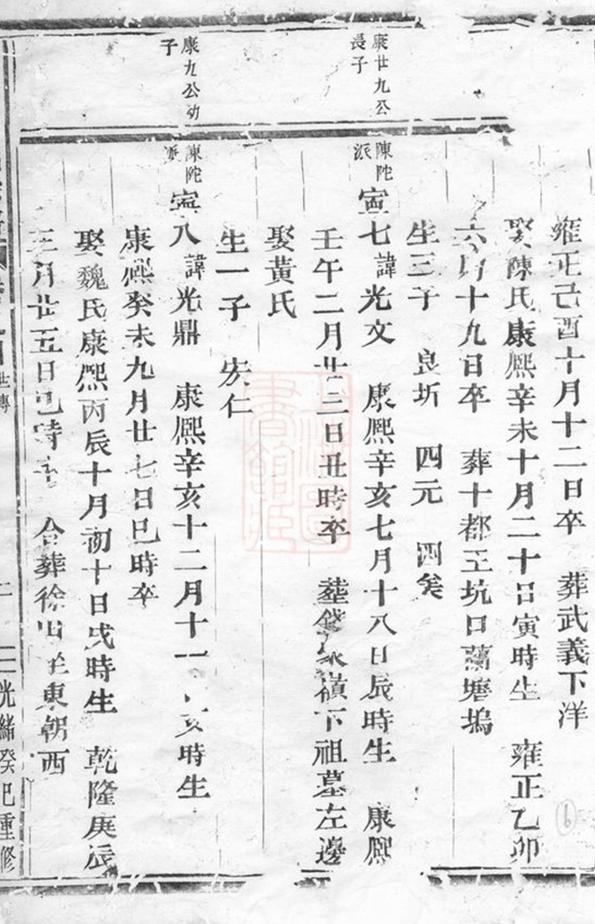 雍正己酉十月十二日卒 葬武義下洋
娶陳氏康熙辛未十月二十日寅時生 雍正乙卯
六月十九日卒 葬十都王坑口蔔塘塢
生三子 良圻 四元
康廿九公
長子
陳陀
派
寅七諱光文 康熙辛亥七月十八日辰時生 康熙
壬午二月廿三日丑時卒 嶺下祖墓左邊
娶黃氏
生一子 仁
康九公幼
子
陳陀
派
寅八諱光鼎 康熙辛亥十二月十一 亥時生
康熙癸未九月廿七日巳時卒
娶魏氏康熙丙辰十月初十日戌時生 乾隆庚辰
三月廿五日巳時卒 合葬徐 東朝西
世傳
光緒癸巳重修
6